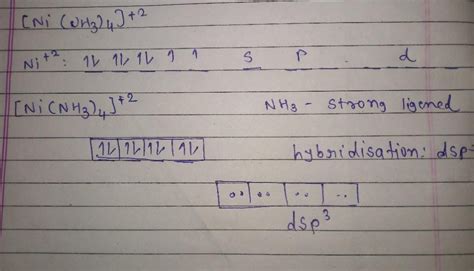 [Ni (NH3)4]+2
Ni+2: 1l 1l 1l 1 1 s p d
[Ni(NH3)4]+2 NH3 - strong ligend
1l 1l 1l 1l hybridisation: dsp
.. .. .. ..
dsp3